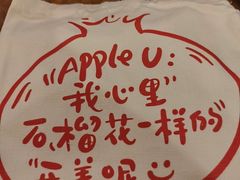 "Apple U:
我心里"
石榴花一样的"
"完美呢